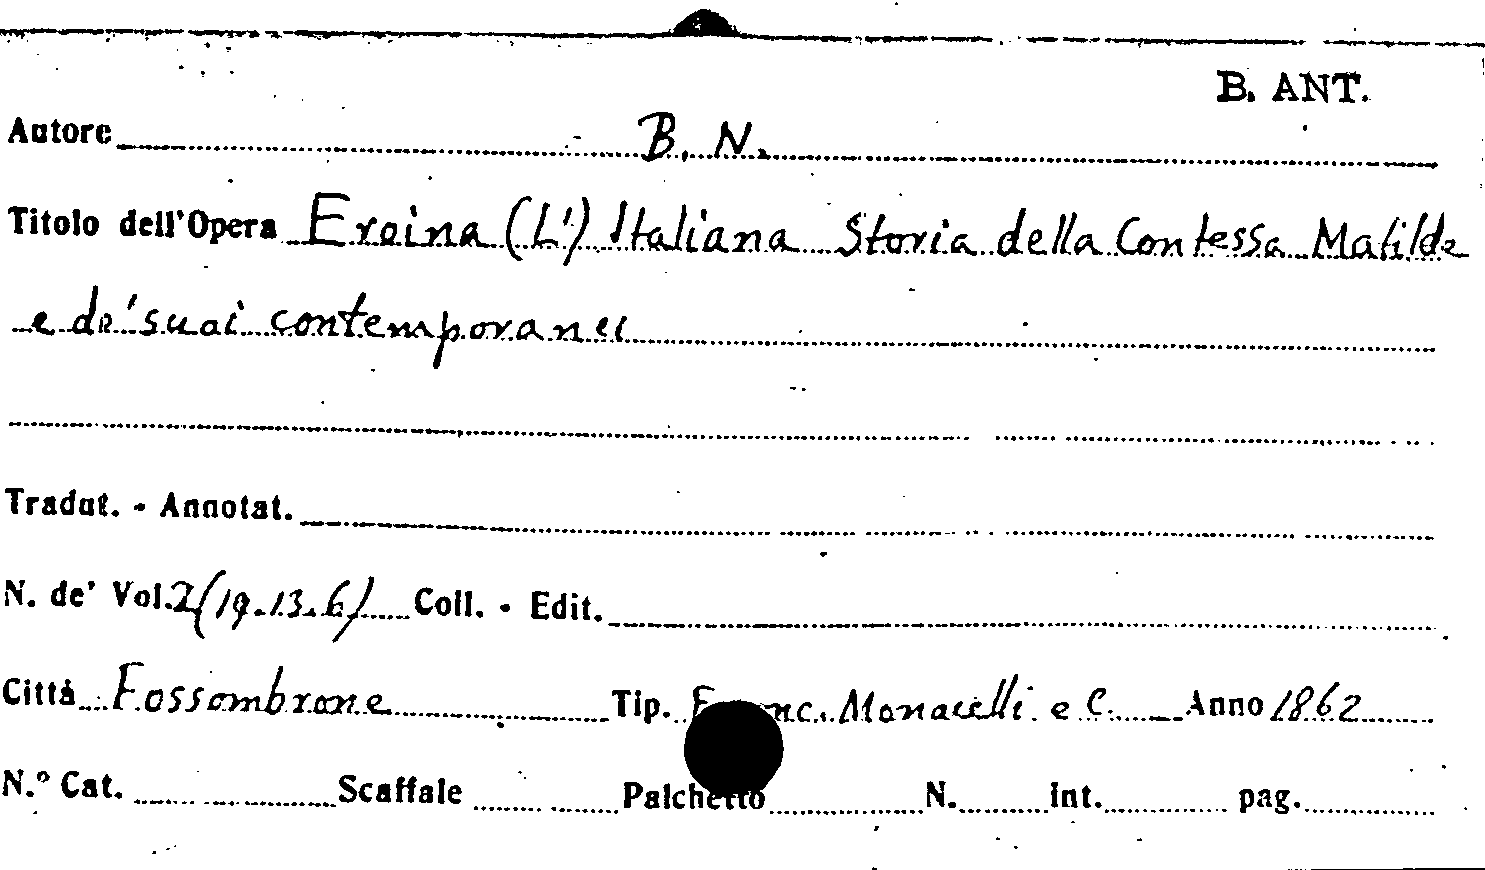 B. ANT.
Autore B. N.
Titolo dell'Opera Eroina (L') Italiana Storia della Contessa Matilde
e de' suoi contemporanei
Tradut. - Annotat.
N. de' Vol. 2 (19.13.6) Coll. - Edit.
Città Fossombrone Tip. Monacelli e C. Anno 1862
N.º Cat. Scaffale Palchetto N. Int. pag.